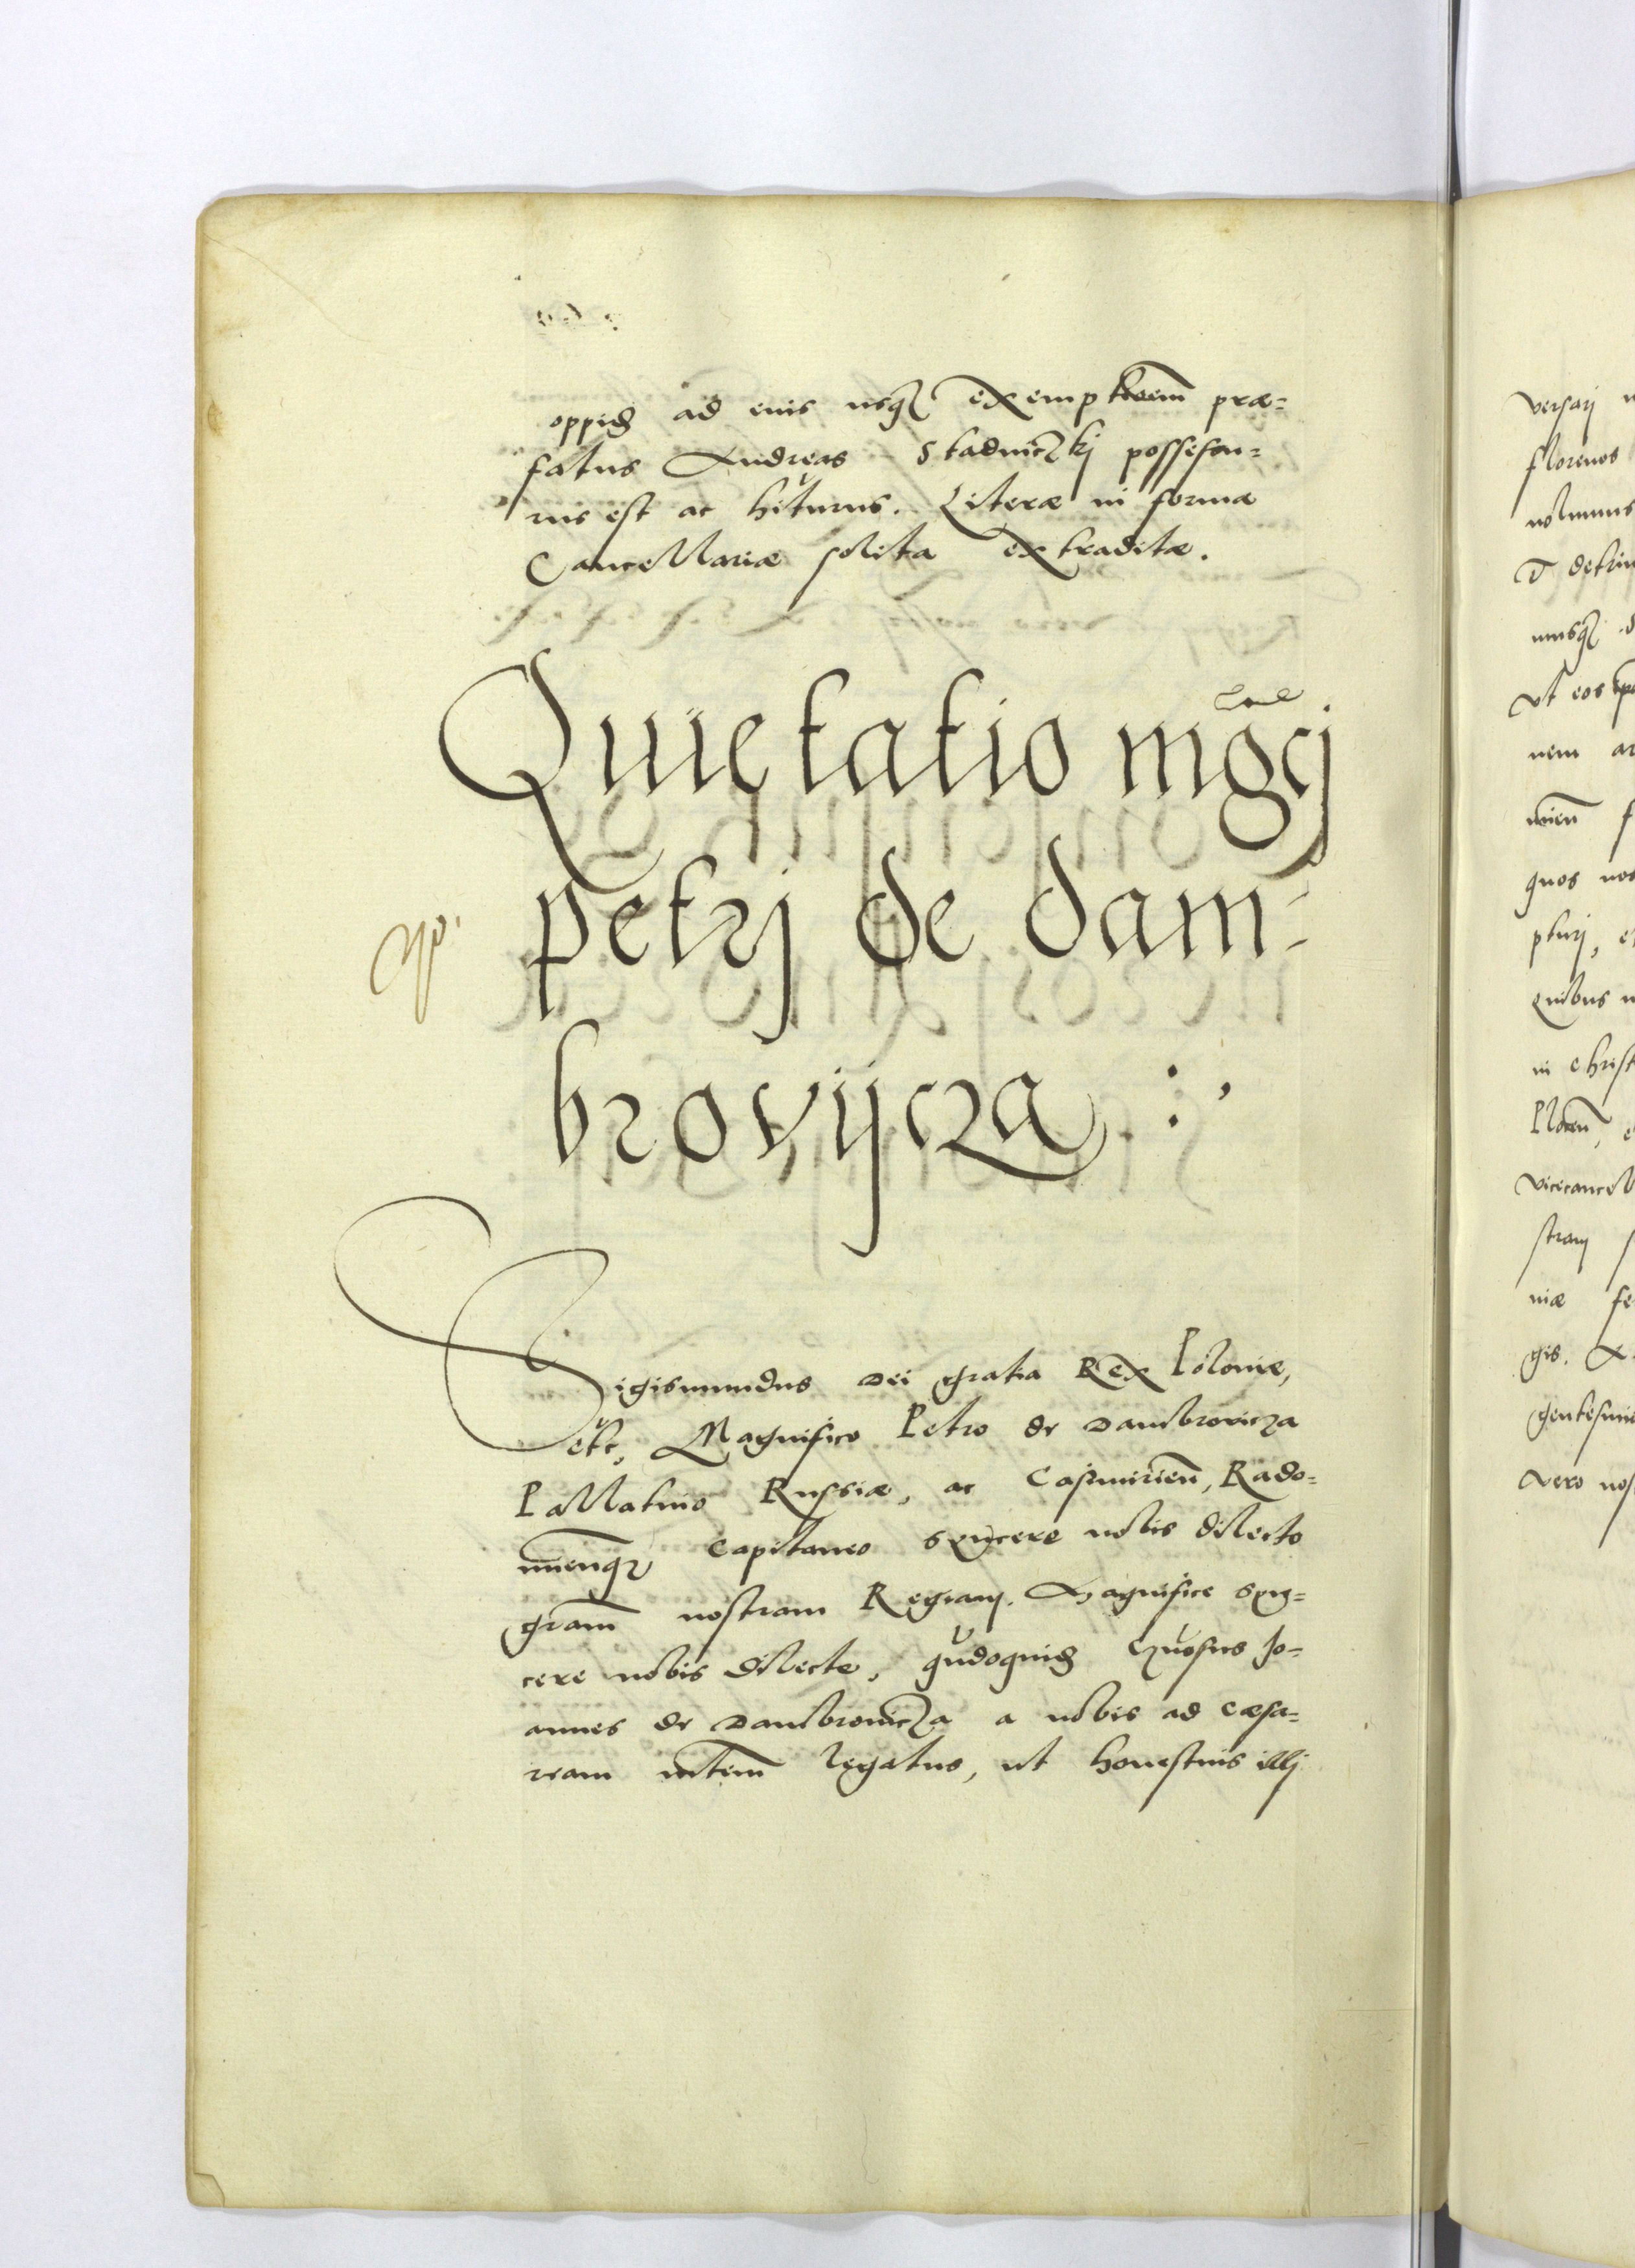 oppid ad euis usq exemptioem præ=
fatus Andreas Stadniczkj possessu=
rus est ac hiturus. Literæ in forma
Cancellariæ solita extraditæ.
Quietatio mgcj
petrj de dam-
brovijcza :,
Sigismundus Dei gratia Rex Poloniæ,
etc, Magnifico Petro de Dambrovicza
Pallatino Russiæ, ac Casimirien, Rado=
mienq Capitaneo syncere nobis dilecto
gram nostram Regiam. Magnifice syn=
cere nobis dilecte, qudoquid Gnosus Jo=
annes de Dambrovicza a nobis ad cæsa=
ream mtem legatus, ut honestius illj
versarj
florenos
volumus
ut eos
nem
quos nos
pturj,
Quibus
in christ
Plocen,
vicecancell
stram
niæ
gis.
gentesimo
vero nos